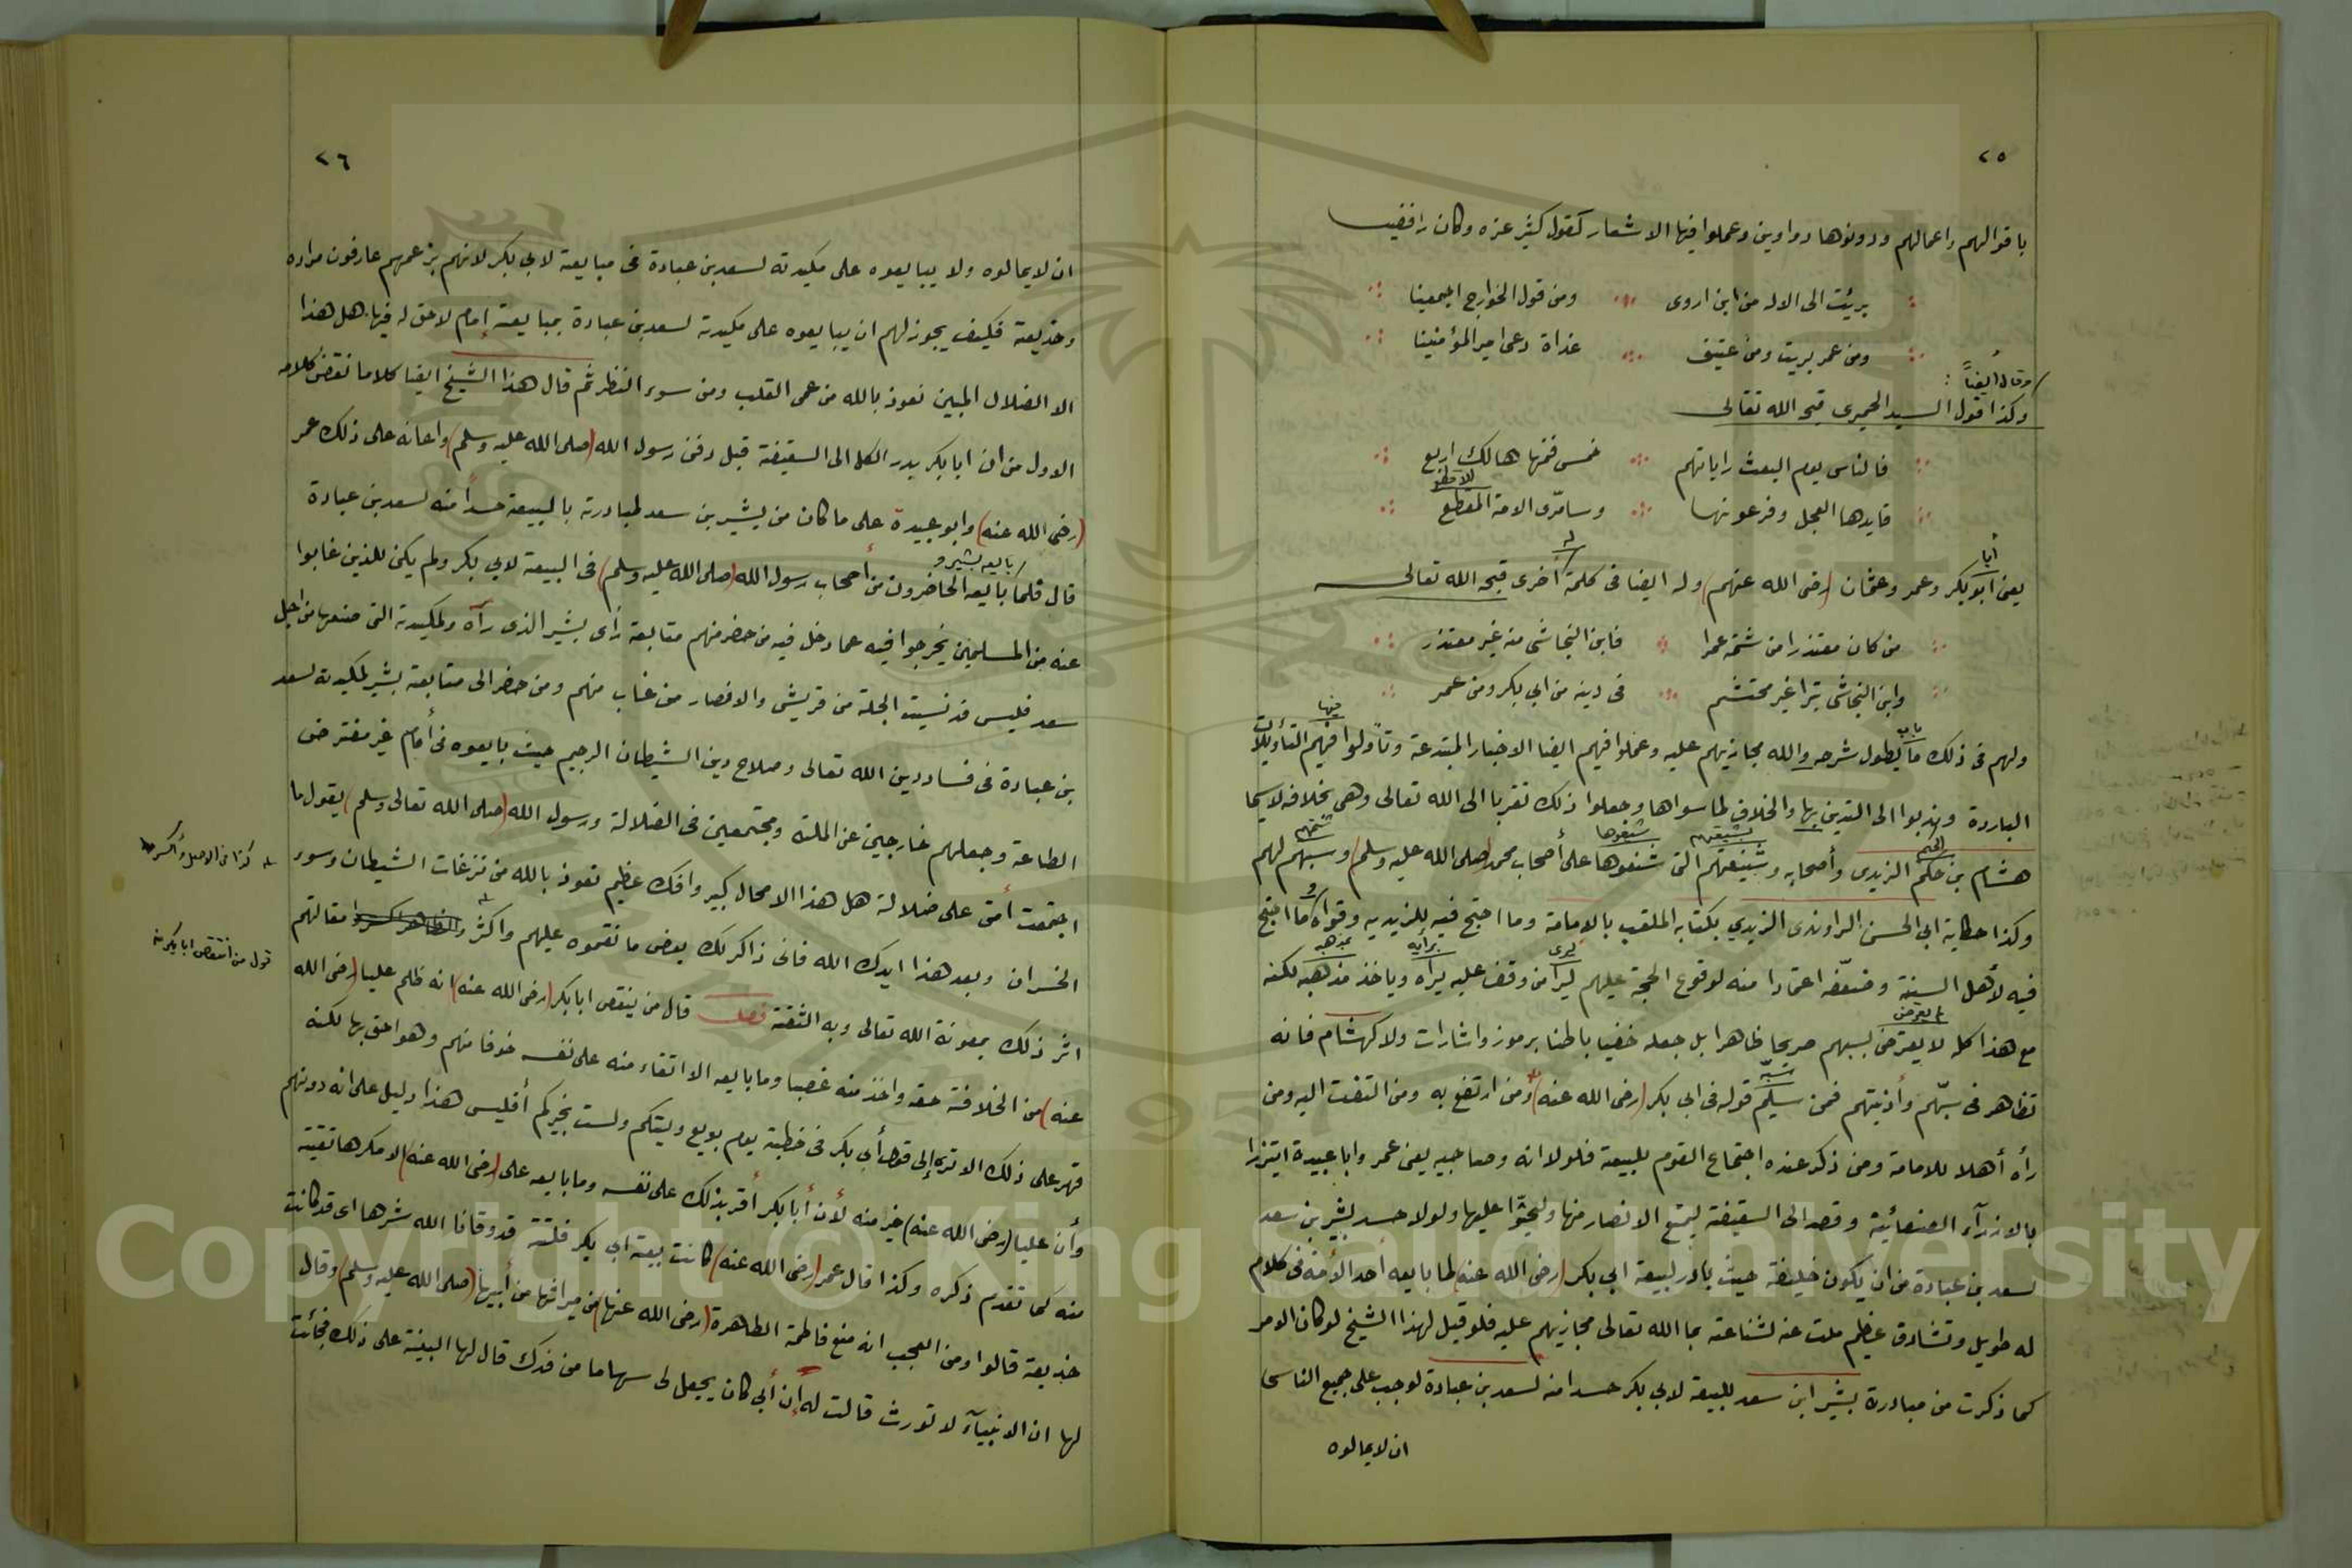 ٢٥
باقوالهم واعمالهم ودونوها دواوين وعملوا فيها الاشعار كقول كثير عزه وكان رافضيا
برئت الى الاله من ابن اروى ومن قول الخوارج اجمعينا
ومن عمر بريت ومن عتيق غداة دعى امير المؤمنينا
وقال أيضاً :
وكذا قول السيد الحميرى قبحه الله تعالى
فالناس يوم البعث راياتهم خمس فمنها هالك اربع
قايدها العجل وفرعونها وسامرّى الامة المقطع
أبا
يعنى ابو بكر وعمر وعثمان (رضى الله عنهم) وله ايضا فى كلمة اخرى قبحه الله تعالى
من كان معتذرا من شتمه عمرا فابن النجاشى منه غير معتذر
وابن النجاشى بترا غير محتشم فى دينه من ابي بكر ومن عمر
ولهم فى ذلك ما يطول شرحه والله مجازيهم عليه وعملوا فيهم ايضا الاخبار المبتدعة وتأولوا فيهم التأويلات
الباردة ونهدبوا الى التدين بها والخلاف لما سواها وجعلوا ذلك تقربا الى الله تعالى وهى بخلافه لاسيما
هشام بن حكم الزيدى وأصحابه وشنيعتهم التى شنعوها على أصحاب محمد (صلى الله عليه وسلم) وسبهم لهم
وكذا حطاية ابي الحسن الراوندى الزيدي بكتابه الملقب بالإمامة وما احتج فيه للزيديه وقواه ما احتج
فيه لأهل السنة وضعّفه اعتمادا منه لوقوع الحجة عليهم ليرا من وقف عليه يراه وياخذ مذهبه لكنه
مع هذا كله لا يعترض لسبهم صريحا ظاهرا بل جعله خفيا باطنا برموز واشارات ولا كهشام فانه
تظاهر فى سبّهم وأذيتهم فمن سبهم قوله فى ابى بكر (رضى الله عنه) ومن ارتضع به ومن التفت اليه ومن
رأه أهلا للامامة ومن ذكر عنده اجتماع القوم للبيعة فلولا انه وصاحبيه يعنى عمر وابا عبيدة ايتزرا
بالازرآء الصنعائية وقصد الى السقيفة ليمنع الانصار منها وليحثّوا عليها ولولا حسد بشير بن سعد
لسعد بن عبادة من ان يكون خليفة حيث بادر لبيعة ابي بكر (رضى الله عنه) لما بايعه أحد الأمة فى كلام
له طويل وتشادق عظيم ملت عنه لشناعته بما الله تعالى مجازيهم عليه فلو قيل لهذا الشيخ لو كان الامر
كما ذكرت من مبادرة بشير ابن سعد للبيعة لابي بكر حسدا منه لسعد بن عبادة لوجب على جميع الناس
ان لا يمالوه
٢٦
ان لا يمالوه ولا يبايعوه على مكيدته لسعد بن عبادة فى مبايعة لابي بكر لانهم بزعمهم عارفون مراده
وخديعته فكيف يجوز لهم ان يبايعوه على مكيدته لسعد بن عبادة بمبايعة إمام لا حق له فيها هل هذا
الا الضلال المبين نعوذ بالله من عمى القلب ومن سوء النظر ثم قال هذا الشيخ ايضا كلاما نقض كلامه
الاول من ان ابا بكر بدر الكلا الى السقيفة قبل دفن رسول الله (صلى الله عليه وسلم) واعانه على ذلك عمر
(رضى الله عنه) وابو عبيدة على ما كان من بشير بن سعد لمبادرته بالبيعة حسداً منه لسعد بن عبادة
بايعه بشير و
قال فلما بايعه الحاضرون من أصحاب رسول الله (صلى الله عليه وسلم) فى البيعة لابي بكر ولم يكن للذين غابوا
عنه من المسلمين يخرجوا فيه عما دخل فيه من حضر منهم متابعة رأى بشير الذى رآه ولمكيدته التى صنعها من اجل
سعد فليس قد نسبت الجلة من قريش والانصار من غاب منهم ومن حضر الى متابعة بشير لمكيدته لسعد
بن عبادة فى فساد دين الله تعالى وصلاح دين الشيطان الرجيم حيث بايعوه فى أمام غير مفترض
الطاعة وجعلهم خارجين عن الملة ومجتمعين فى الضلالة ورسول الله (صلى الله تعالى وسلم) يقول ما
اجتمعت أمتى على ضلالة هل هذا الا محال كبير وافك عظيم نعوذ بالله من نزغات الشيطان وسوء
الخسران وبعد هذا ايدك الله فانى ذاكر لك بعض ما نقموه عليهم واكثر مقالتهم
اثر ذلك بمعونة الله تعالى وبه الثقة فصل قال من ينقص ابا بكر (رضى الله عنه) انه ظلم عليا (رضى الله
عنه) من الخلافة حقه واخذ منه غصبا وما بايعه الا اتقاء منه على نفسه خوفا منهم وهو احق بها لكنه
قهر على ذلك الا ترى إلى قول أبي بكر فى خطبة يوم بويع وليتكم ولست بخيركم أفليس هذا دليل على انه دونهم
وأن عليا (رضى الله عنه) خير منه لأن أبا بكر أقر بذلك على نفسه وما بايعه على (رضى الله عنه) الا مكرها تقية
منه كما تقدم ذكره وكذا قال عمر (رضى الله عنه) كانت بيعة ابي بكر فلتة قد وقانا الله شرها اى قد كانت
خديعة قالوا ومن العجب انه منع فاطمة الطاهرة (رضى الله عنها) من ميراثها من أبيها (صلى الله عليه وسلم) وقال
لها ان الانبيآء لا تورث قالت له إن أبي كان يجعل لى سهاما من فدك قال لها البينة على ذلك فجائت
كذا فى الاصل
قول من انتقص ابا بكر
Copyright © King Saud University